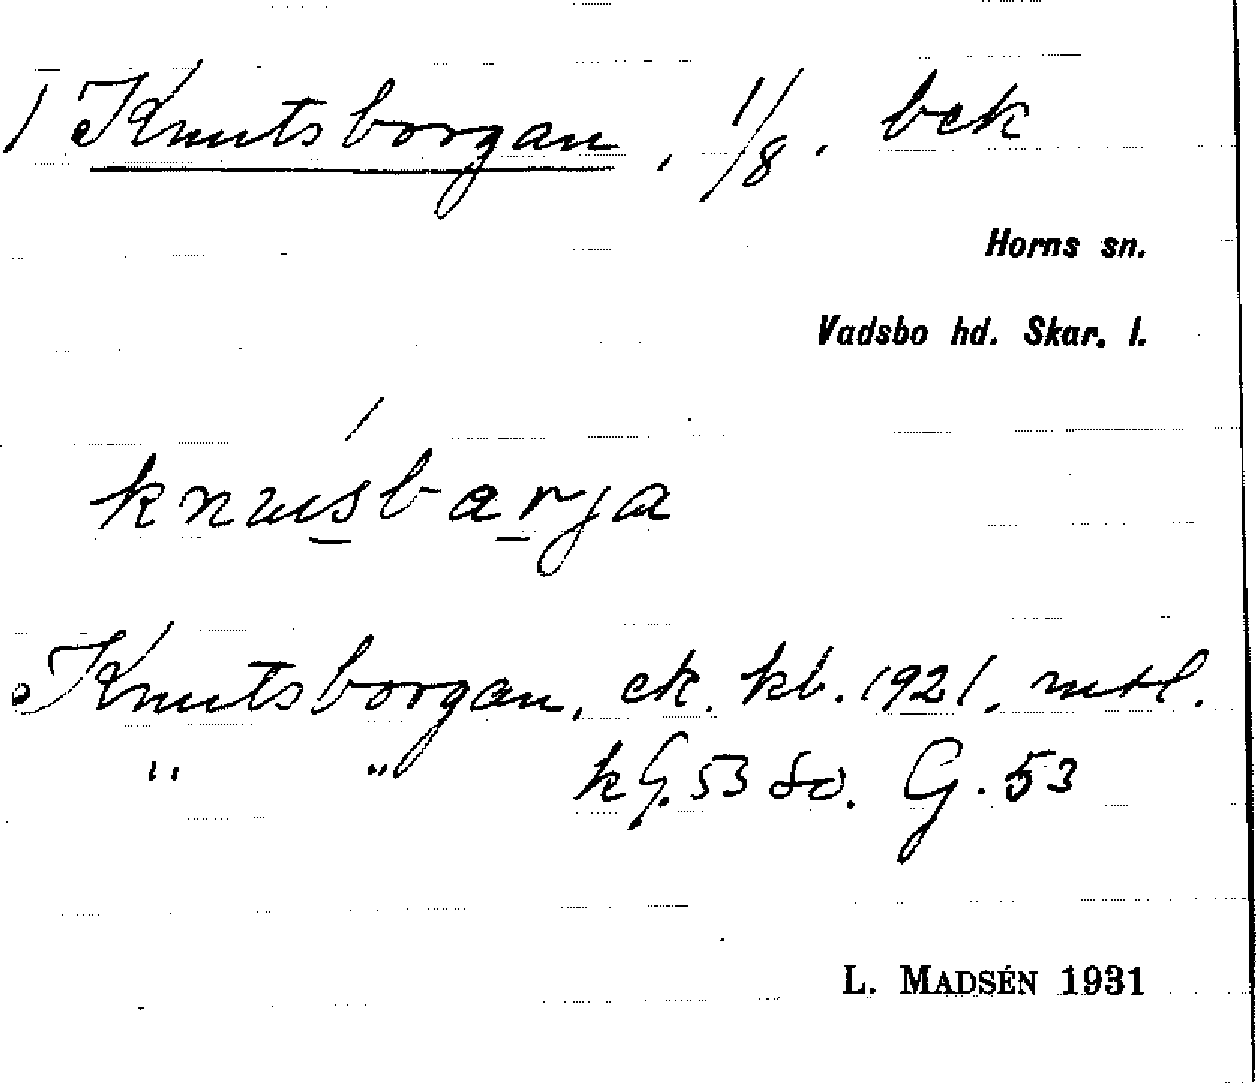 1 Knutsborgan, 1/8. bek
Horns sn.
Vadsbo hd. Skar. l.
Knutsborgan, ek. kb. 1921, mtl.
" " kG. 53 so. G. 53
L. MADSÉN 1931